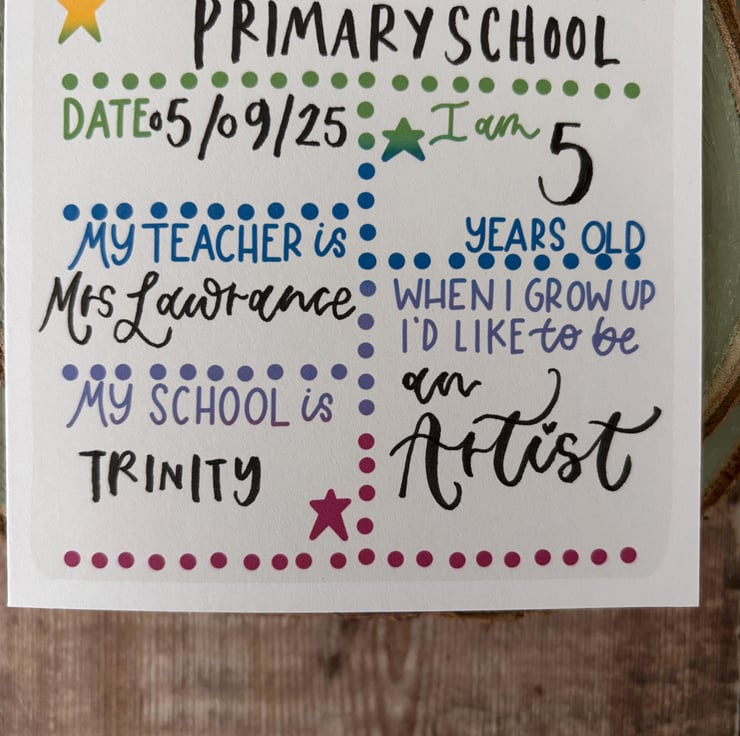 PRIMARY SCHOOL
DATE 05/09/25
I am
5
YEARS OLD
MY TEACHER is
Mrs Lawrance
MY SCHOOL is
TRINITY
WHEN I GROW UP
I'D LIKE to be
an
Artist